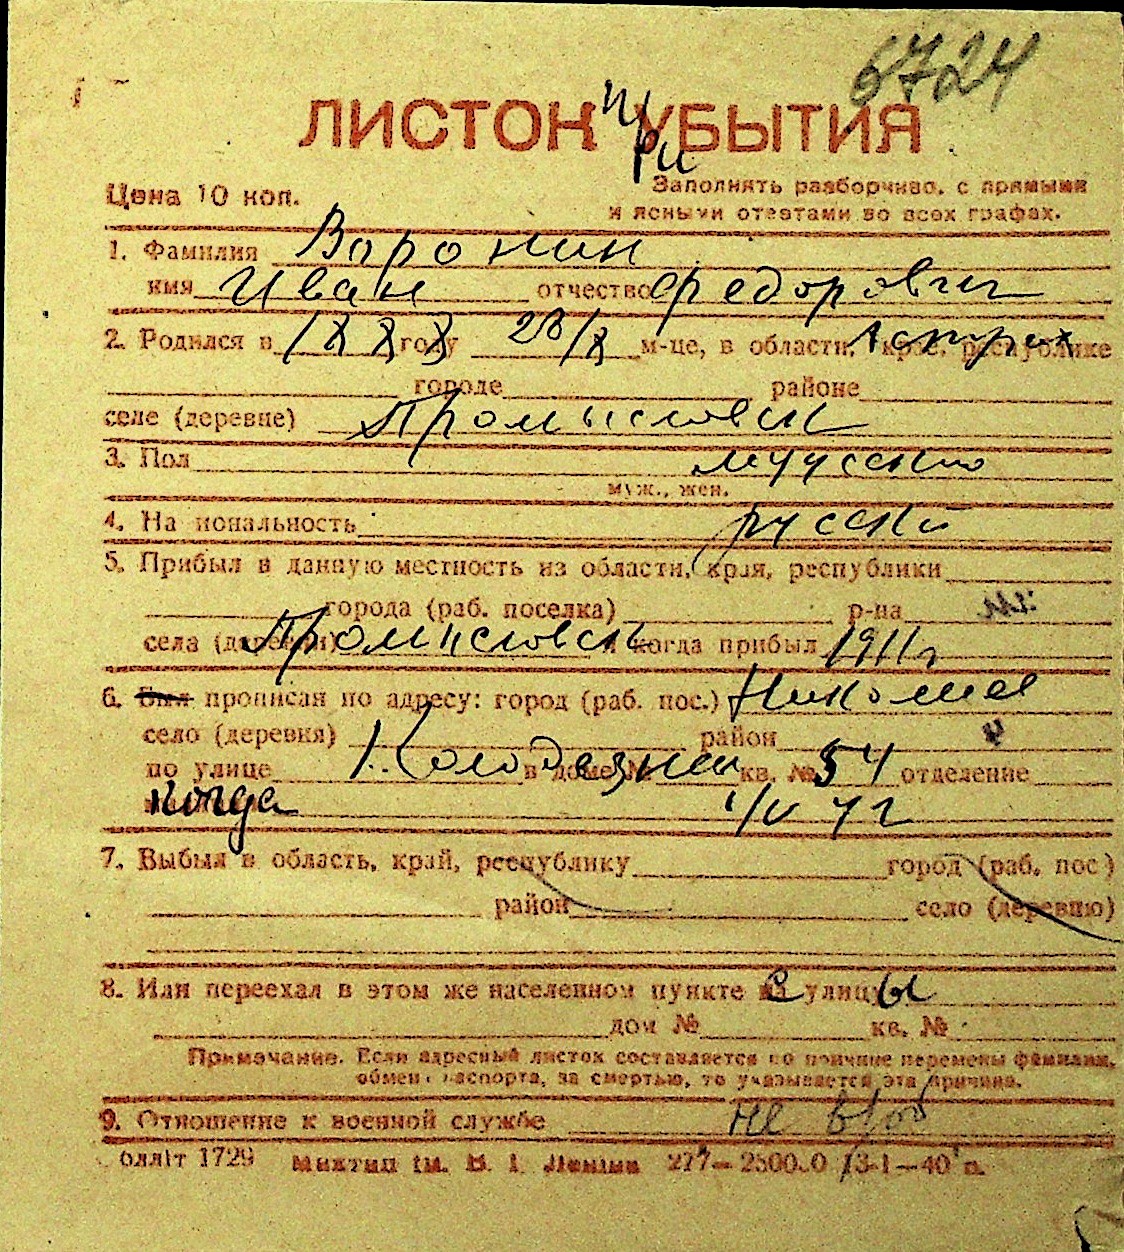 6724
ЛИСТОК УБЫТИЯ
при
Цена 10 коп.
Заполнять разборчиво, с прямыми
и ясными ответами во всех графах.
1. Фамилия Воронин
имя Иван отчество Федорович
2. Родился в году 28/X м-це, в области, крае, республике
городе районе
селе (деревне)
3. Пол
муж., жен.
4. Национальность русский
5. Прибыл в данную местность из области, края, республики
города (раб. поселка) р-на
села (деревни) и когда прибыл 1911 г
6. Был прописан по адресу: город (раб. пос.)
село (деревня) район
по улице в доме № кв. № 54 отделение
когда
7. Выбыл в область, край, республику город (раб. пос)
район село (деревню)
8. Или переехал в этом же населенном пункте улицы
дом № кв. №
Примечание. Если адресный листок составляется по причине перемены фамилии,
обмена паспорта, за смертью, то указывается эта причина.
9. Отношение к военной службе не в/об
олліт 1729 ім. В. І. Леніна 13-1—40 п.